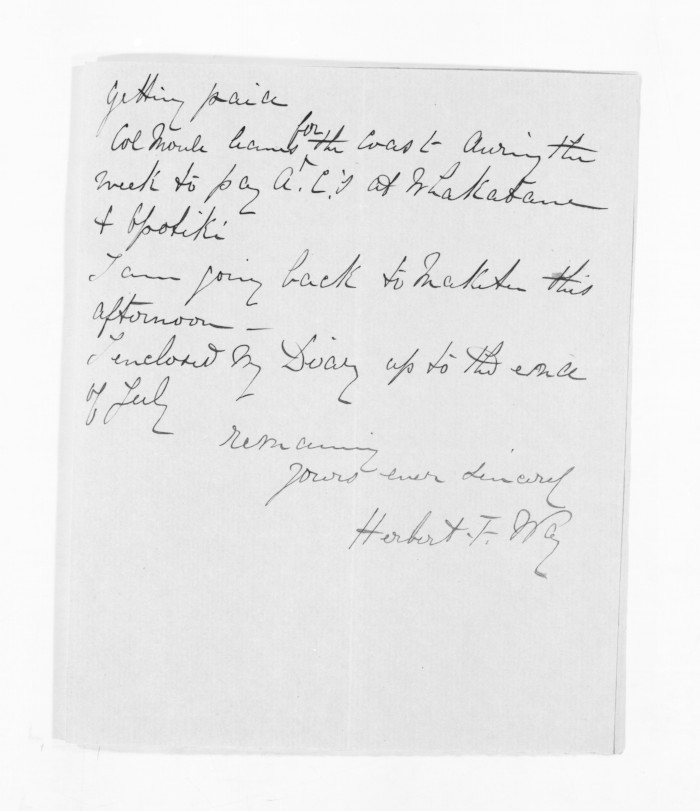 getting paid
Col Moule leaves for the Coast during the
week to pay A.C.'s at Whakatane
& Opotiki
I am going back to Maketu this
afternoon –
I enclosed my Diary up to the end
of July
remaining
yours ever sincerely
Herbert. F. Way